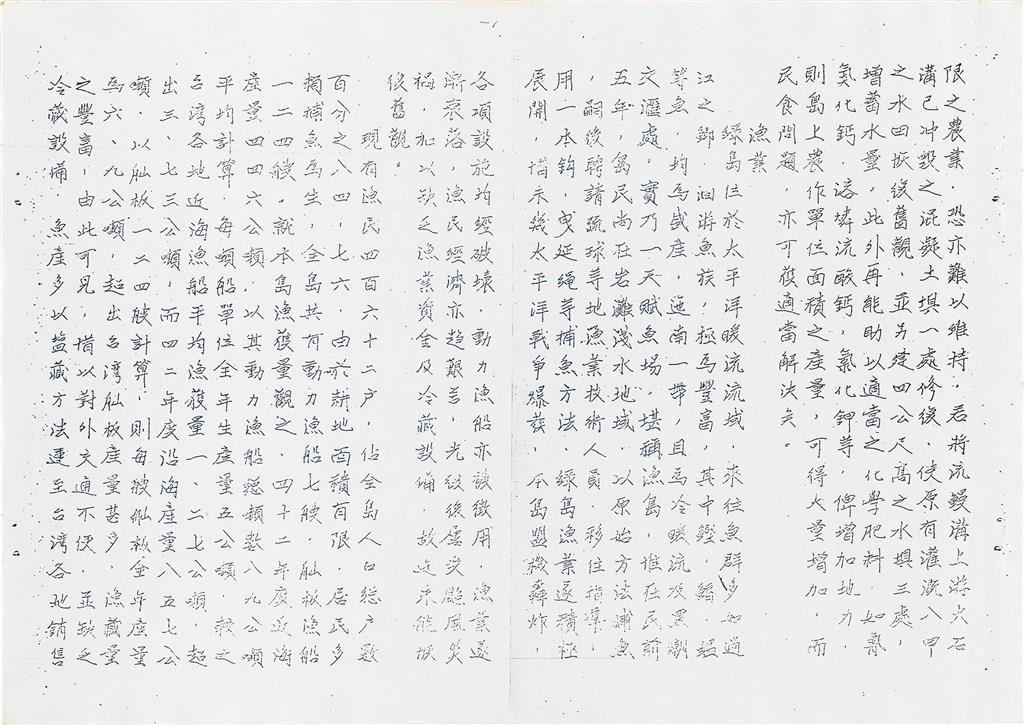 限之農業﹐恐亦難以維持﹐若將流鰻溝上游火石
溝已冲毀之混凝土埧一處修復﹐使原有灌溉八甲
之水田恢復舊觀﹐並另建四公尺高之水埧三處﹐
增蓄水量﹐此外再能助以適當之化學肥料﹐如青
氮化鈣﹐溶燐流酸鈣﹐氯化鉀等﹐俾增加地力﹐
則島上農作單位面積之產量﹐可得大量增加﹐而
民食問題﹐亦可獲適當解決矣。
漁業
綠島位於太平洋暖流流域﹐來往魚群多如過
江之鄉﹐洄游魚族﹐極為豐富﹐其中鰹﹐鰆﹐
等魚﹐均為盛產﹐迤南一帶﹐且為冷暖流及黑潮
交滙處﹐實乃一天賦魚場﹐堪稱漁島﹐惟在民前
五年﹐島民尚在岩灘淺水地域﹐以原始方法捕魚
﹐嗣後聘請琉球等地漁業技術人員﹐移住指導﹐
用一本鈎﹐曳延繩等捕魚方法﹐綠島漁業遂積極
展開﹐惜未幾太平洋戰爭爆發﹐本島盟機轟炸﹐
一、
各項設施均經破壞﹐動力漁船亦被徵用﹐漁業遂
漸衰落﹐漁民經濟亦趨艱苦﹐光復後屢受颱風災
禍﹐加以缺乏漁業資金及冷藏設備﹐故迄未能恢
復舊觀。
現有漁民四百六十二户﹐佔全島人口總户數
百分之八四﹐七六﹐由於耕地面積有限﹐居民多
賴捕魚為生﹐全島共有動力漁船七艘﹐舢板漁船
一二四艘﹐就本島漁獲量觀之﹐四十二年度近海
產量四四六公頓﹐以其動力漁船總頓數八九公噸
平均計算﹐每噸船單位全年生產量五公噸﹐較之
台灣各地近海漁船平均漁獲量一、二七公噸﹐超
出三、七三公噸﹐而四二年度沿海產量八五七公
噸﹐以舢板一二四艘計算﹐則每艘舢板全年產量
為六、九公噸﹐超出台灣舢板產量甚多﹐漁藏量
之豐富﹐由此可見﹐惜以對外交通不便﹐並缺乏
冷藏設備﹐魚產多以塩藏方法運至台灣各地銷售